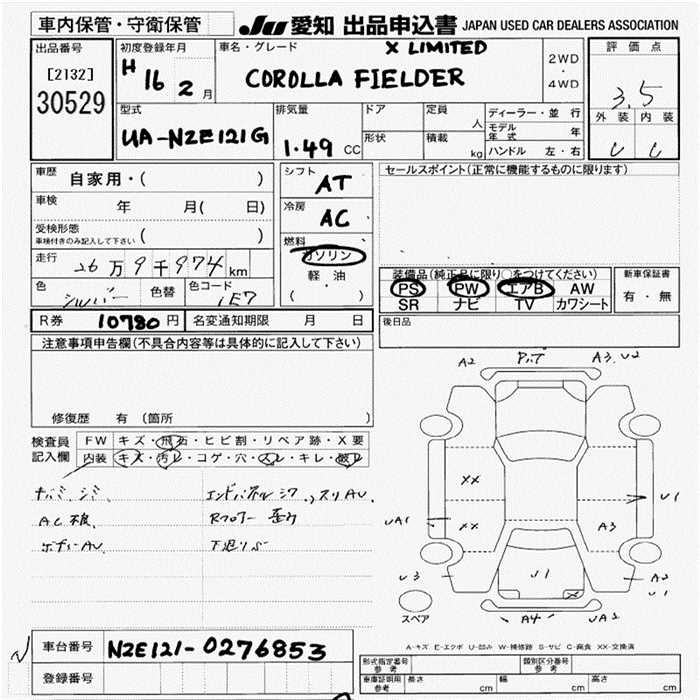 車内保管・守衛保管
JU 愛知 出品申込書 JAPAN USED CAR DEALERS ASSOCIATION
出品番号
[2132]
30529
初度登録年月
H 16 2 月
車名・グレード
X LIMITED
COROLLA FIELDER
2WD
・
4WD
評価点
3.5
外装 内装
型式
UA-NZE121G
排気量
1.49 CC
ドア
定員
人
形状
積載
kg
ディーラー・並行
モデル年式 年
ハンドル 左・右
車歴
自家用・( )
車検
年 月( 日)
受検形態
車検付きのみ記入して下さい ( )
走行
26万9千974km
色
シルバー
色替
色コード
1E7
シフト
AT
冷房
AC
燃料
ガソリン
軽・油
( )
セールスポイント(正常に機能するものに限ります)
装備品(純正品に限り○をつけてください)
PS PW エアB AW
SR ナビ TV カワシート
新車保証書
有・無
R券 10780円 名変通知期限 月 日
後日品
注意事項申告欄(不具合内容等は具体的に記入して下さい)
修復歴 有(箇所 )
検査員記入欄
FW キズ・飛石・ヒビ割・リペア跡・X要
内装 キズ・汚レ・コゲ・穴・スレ・キレ・破レ
AC不良、
ボディーAU
エンドパネル
Rフロアー
下廻り
A2
A3. U2
XX
XX
UA1
U1
A3
U3
J1
A2
U1
A4
UA2
スペア
A-キズ E-エクボ U-凹み W-補修跡 S-サビ C-腐食 XX-交換済
車台番号 NZE121-0276853
登録番号
形式指定番号
参考
類別区分番号
参考
車庫証明用
参考
長さ cm 幅 cm 高さ cm